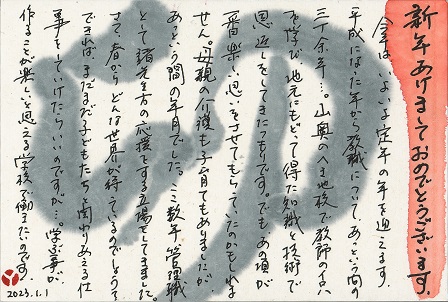 新年あけましておめでとうございます。
今年はいよいよ定年の年を迎えます。
平成になった年から教職について、あっという間の
三十余年…。山奥のへき地校で教師のイロハ
を学び、地元にもどって得た知識と技術で
恩返しをしてきたつもりです。でもあの頃が
一番楽しい思いをさせてもらっていたのかもしれま
せん。母親の介護も子育てもありましたが、
あっという間の年月でした。ここ数年管理職
として諸先生方の応援をする立場をしてきました。
さて、春からどんな世界が待っているのでしょう?
できれば、まだまだ子どもたちと関わりあえる仕
事をしていけたらいいのですが…。学ぶ事が、
作ることが楽しいと思える学校で働きたいのです。
2023.1.1